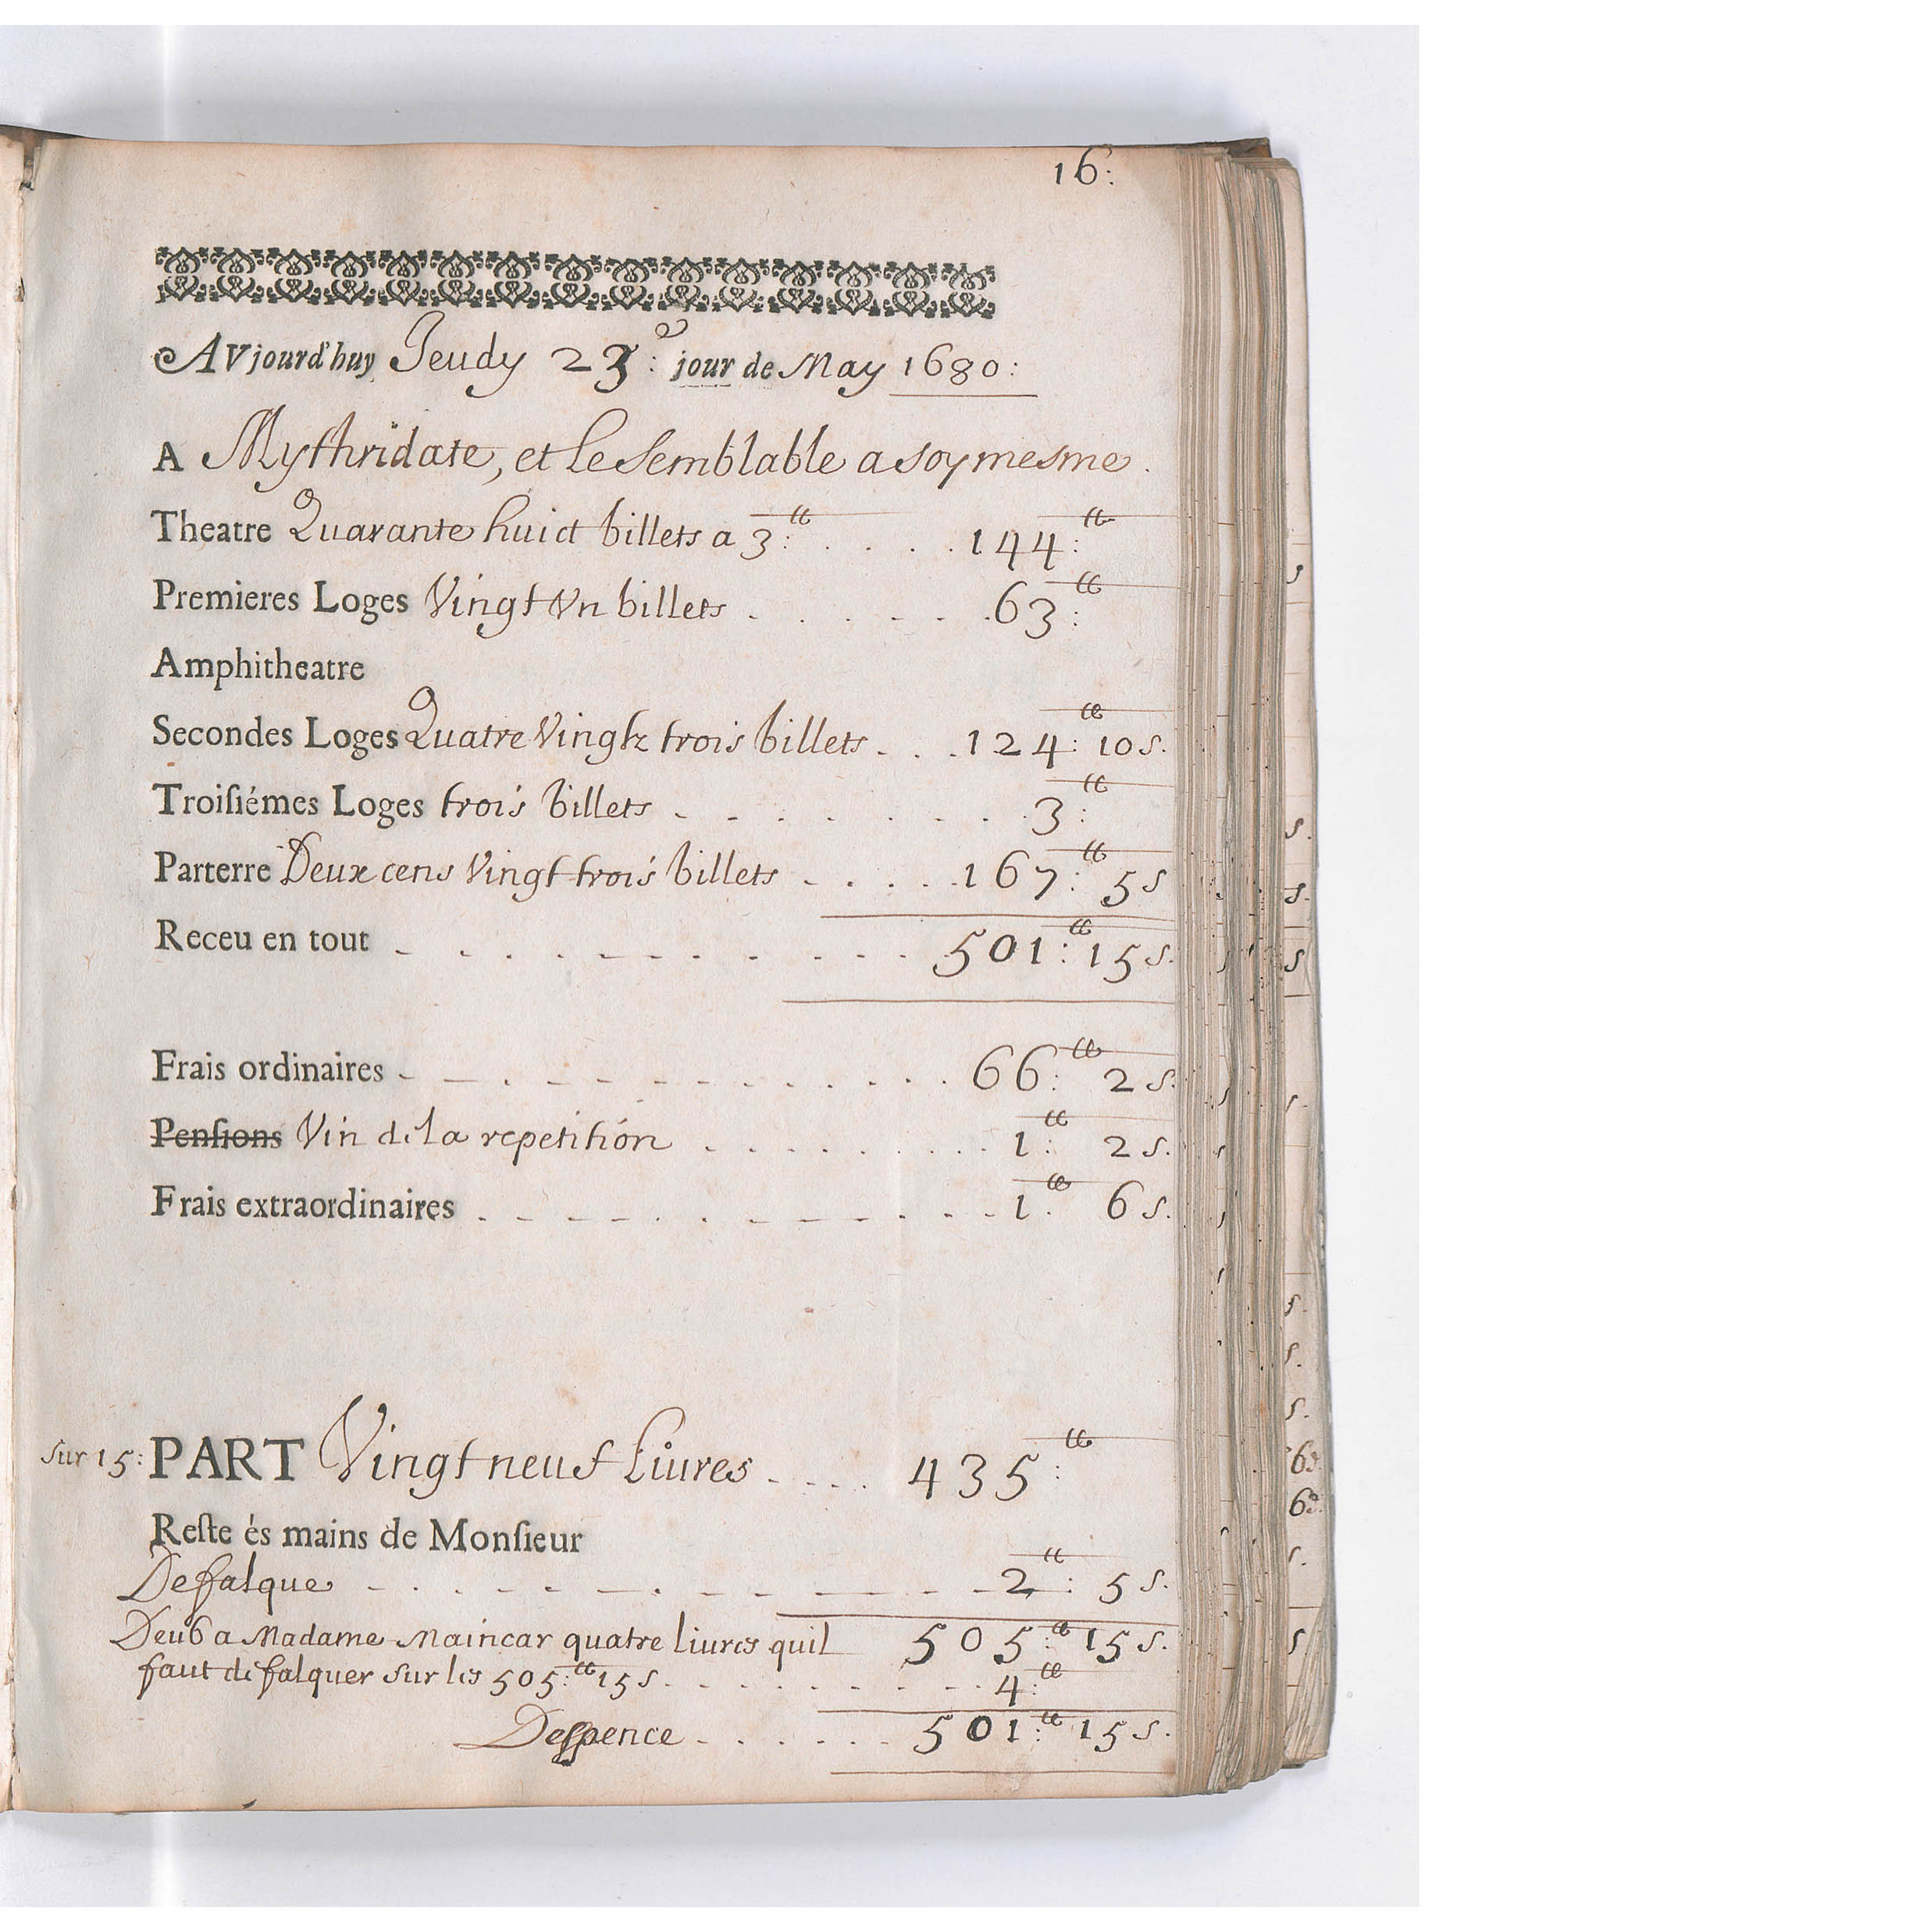 16:
AVjourd'huy Jeudy 23e: jour de May 1680:
A Mythridate, et le Semblable a soy mesme.
Theatre Quarante huict billets a 3:tt . . . . 144:tt
Premieres Loges Vingt Vn billets . . . . . . 63:tt
Amphitheatre
Secondes Loges Quatre Vingtz trois billets . . . 124:tt 10 s.
Troisiémes Loges trois billets . . . . . . . . 3:tt
Parterre Deux cens Vingt trois billets . . . . . 167:tt 5 s
Receu en tout . . . . . . . . . . . 501:tt 15 s.
Frais ordinaires . . . . . . . . . . . 66:tt 2 s.
Pensions Vin de la repetition . . . . . . . . 1:tt 2 s.
Frais extraordinaires . . . . . . . . . . . 1:tt 6 s.
Sur 15: PART Vingt neuf Liures . . . . 435:tt
Reste és mains de Monsieur
Defalque . . . . . . . . . . 2:tt 5 s.
Deub a Madame Maincar quatre liures quil 505:tt 15 s.
faut defalquer sur les 505:tt 15 s . . . . . . . . 4:tt
Despence . . . . . . 501:tt 15 s.